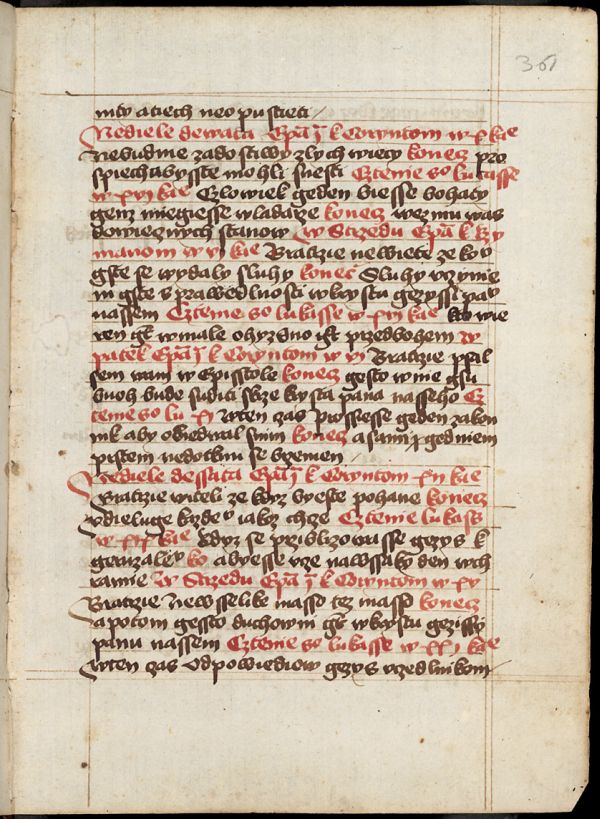 361
mity a tiech neopustieti
Nediele dewata Epła j k Coryntom w x kae
Nebudme zadostiwy zlych wiecy konecz pro
spiechu byste mohli snesti Cztenie so lukasse
w xvj kae Czlowiek geden biesse bohaty
genz miegiesse wladarze konecz wezmu was
do wiecznych stanow w Strzedu Epła k Rzy
manom w vj kae Bratrzie newiete ze komu
gste se wydaly sluhy konec Sluhy vczynie
ni gste sprawedlnosti w krystu gezyssi panu
nassem Cztenie so lukasse w xvj kae kto wie
ren gest w male
patek Epła j k Coryntom w vj Bratrzie psal
sem wam w Episstole konecz gesto wnie gsu
buoh bude suditi skrze krysta pana nasseho Cz
tenie so lu xj W ten czas prossesse geden zakon
nik aby obiedwal snim konecz a sami gedniem
prstem nedotknu se brzemen
Nediele dessata Epła j k Coryntom xij kae
Bratrzie wieteli ze kdyz byeste pohane konecz
vdieluge kazdemu iakoz chcze Cztenie lukass
w xix kae kdyz se prziblizowasse gezys k
geruzalemu ko abyesse vcze na wssaky den w ch
ramie w Strzedu Epła j k Coryntom w xv
Bratrzie Ne wsselike masso tez masso konecz
a potom gessto duchowni gest w krystu gezissy
panu nassem Cztenie so lukasse w xx kae
W ten czas odpowiediew gezys vrzedlnikom